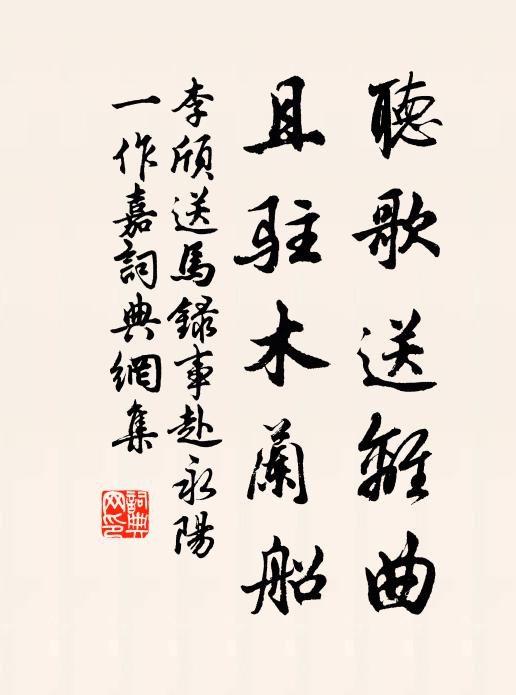 聽歌送離曲
且駐木蘭船
李頎送馬録事赴永陽
一作嘉詞典網集
詞典网印